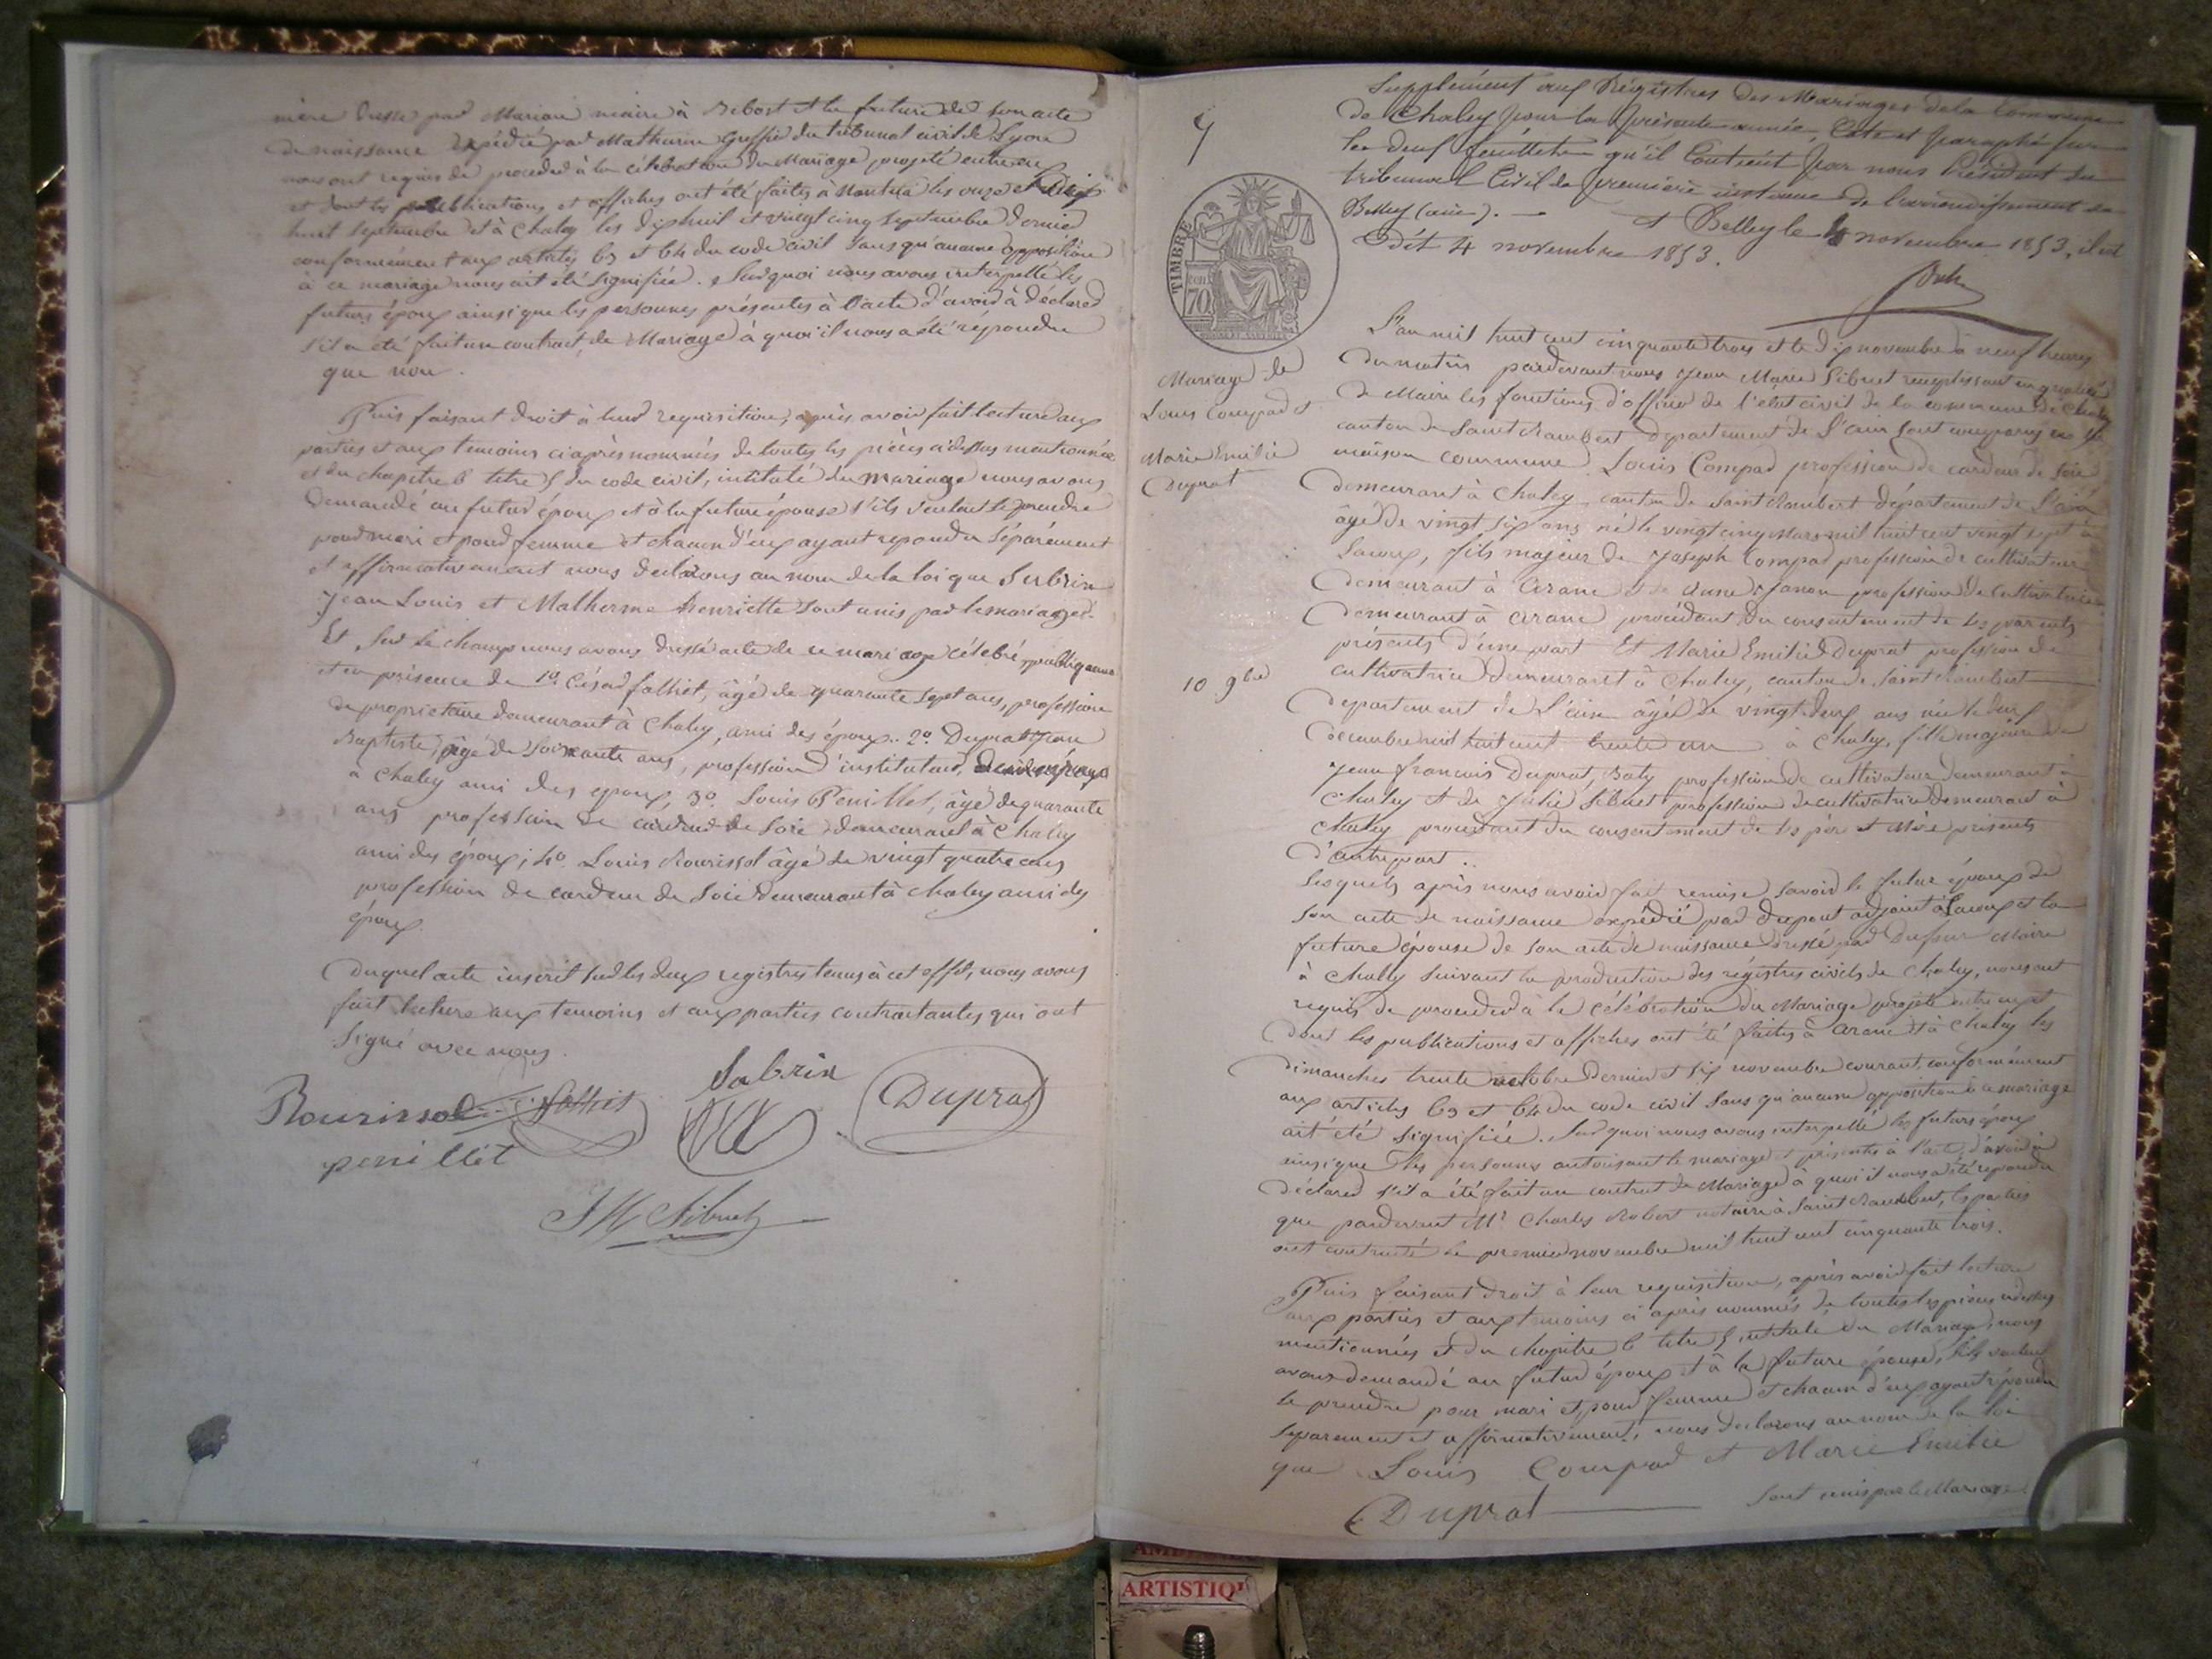 mère dressé par Mariane maire à Belost et la future de son acte
de naissance expédié par Mathurin greffier du tribunal civil de Lyon
nous ont requis de procéder à la célébration du Mariage projeté entre eux
et dont les publications et affiches ont été faites à Nantua les onze et dix
huit septembre et à Chaley les dix huit et vingt cinq septembre dernier
conformément aux articles 63 et 64 du code civil sans qu'aucune opposition
à ce mariage nous ait été signifiée. Sur quoi nous avons interpellé les
futurs époux ainsi que les personnes présentes à l'acte d'avoir à déclarer
s'il a été fait un contract de Mariage à quoi il nous a été répondu
que non.
Puis faisant droit à leur requisition, après avoir fait lecture aux
parties et aux temoins ci après nommés de toutes les pièces ci dessus mentionnées
et du chapitre 6 titre 5 du code civil, intitulé du mariage nous avons
demandé au futur époux et à la future épouse s'ils veulent se prendre
pour mari et pour femme et chacun d'eux ayant repondu séparément
et affirmativement nous declarons au nom de la loi que Subrin
Jean Louis et Malherme henriette sont unis par le mariage.
Et sur le champ nous avons dressé acte de ce mariage célébré publiquement
et en présence de 1o. César folliet, âgé de quarante sept ans, profession
de proprietaire demeurant à Chaley, ami des époux. 2o. Duprat Jean
Baptiste, âgé de soixante ans, profession d'instituteur,
à Chaley ami des epoux, 3o. Louis Penillet, âgé de quarante
ans profession de cardeur de soie demeurant à Chaley
ami des époux; 4o. Louis Rourissol âgé de vingt quatre ans
profession de cardeur de soie demeurant à Chaley ami des
époux.
Duquel acte inscrit sur les deux registres tenus à cet effet, nous avons
fait lecture aux temoins et aux parties contractantes qui ont
signé avec nous.
Sabrin
Rourissol folliet Duprat
penillet
JM Sibuet
Supplément aux Régistres des Mariages de la Commune
de Chaley pour la présente année, Coté et paraphé sur
les deux feuillets qu'il Contient par nous Président du
tribunal Civil de première instance de l'arrondissement de
Belley (ain). — A Belley le 4 novembre 1853,
Dit 4 novembre 1853.
TIMBRE
70
L'an mil huit cent cinquante trois et le dix novembre à neuf heures
du matin pardevant nous Jean Marie Sibuet remplissant en qualité
Mariage de
de Maire les fonctions d'officier de l'état civil de la commune de Chaley
Louis Compad et
canton de Saint Rambert departement de l'ain sont comparus en la
Marie Emilie
maison commune Louis Compad profession de cardeur de soie
Duprat
demeurant à Chaley canton de Saint Rambert département de l'ain
âgé de vingt six ans né le vingt cinq Mars mil huit cent vingt sept à
fils majeur de Joseph Compad profession de cultivateur
demeurant à Arane et de Anne profession de cultivatrice
demeurant à Arane procédant du consentement de ses parents
présents d'une part Et Marie Emilie Duprat profession de
10 9bre
cultivatrice demeurant à Chaley, canton de Saint Rambert
departement de l'ain âgée de vingt deux ans née le deux
decembre mil huit cent trente un à Chaley, fille majeure de
Jean francois Duprat, Baty profession de cultivateur demeurant à
Chaley et de Julie Sibuet profession de cultivatrice demeurant à
Chaley procédant du consentement de ses père et Mère présents
d'autre part..
Lesquels après nous avoir fait remise savoir le futur époux de
son acte de naissance expédié par Dupont adjoint à et la
future épouse de son acte de naissance dressé par Dufour Maire
à Chaley suivant la production des régistres civils de Chaley, nous ont
requis de procéder à la célébration du Mariage projeté entre eux et
dont les publications et affiches ont été faites à Arane et à Chaley les
dimanches trente octobre dernier et six novembre courant, conformément
aux articles 63 et 64 du code civil sans qu'aucune opposition à ce mariage
ait été signifiée. Sur quoi nous avons interpellé les futurs époux
ainsi que les personnes autorisant le mariage et présentes à l'acte, d'avoir à
déclarer s'il a été fait un contrat de Mariage à quoi il nous a été repondu
que pardevant Mr. Charles Robert notaire à Saint Rambert, les parties
ont contracté le premier novembre mil huit cent cinquante trois.
Puis faisant droit à leur requisition, après avoir fait lecture
aux parties et aux temoins ci après nommés de toutes les pièces ci dessus
mentionnées et du chapitre 6 titre 5 intitulé du Mariage, nous
avons demandé au futur époux et à la future épouse, s'ils veulent
se prendre pour mari et pour femme et chacun d'eux ayant répondu
séparement et affirmativement, nous declarons au nom de la loi
que Louis Compad et Marie Emilie
Duprat — sont unis par le Mariage
ARTISTIQU